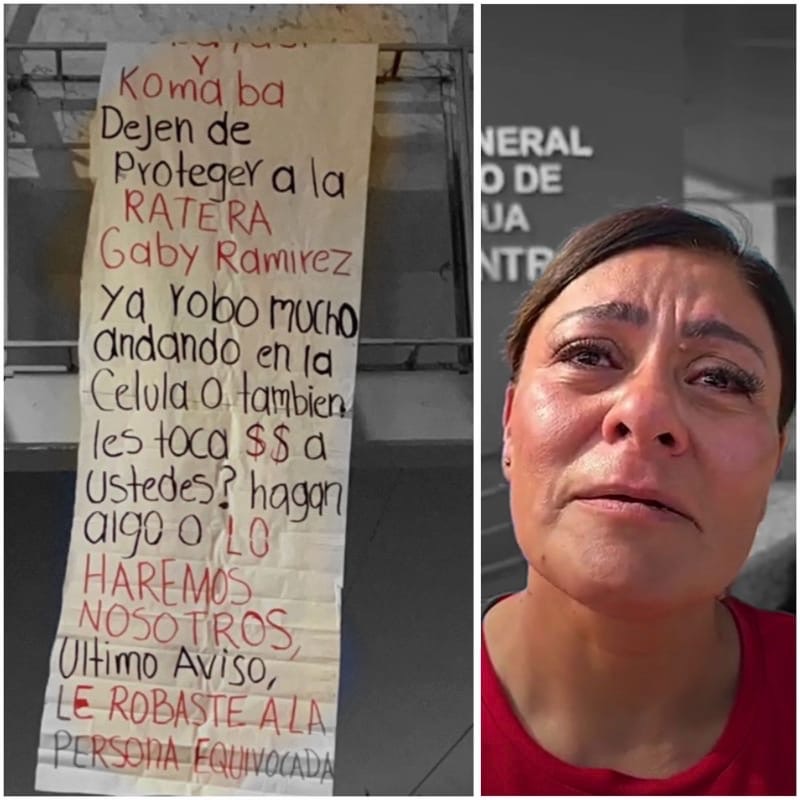 Y
Komaba
Dejen de
Proteger a la
RATERA
Gaby Ramirez
Ya robo mucho
andando en la
Celula o tambien
les toca $$ a
ustedes? hagan
algo o LO
HAREMOS
NOSOTROS,
Ultimo Aviso,
LE ROBASTE A LA
PERSONA EQUIVOCADA
NERAL
O DE
UA
NTR